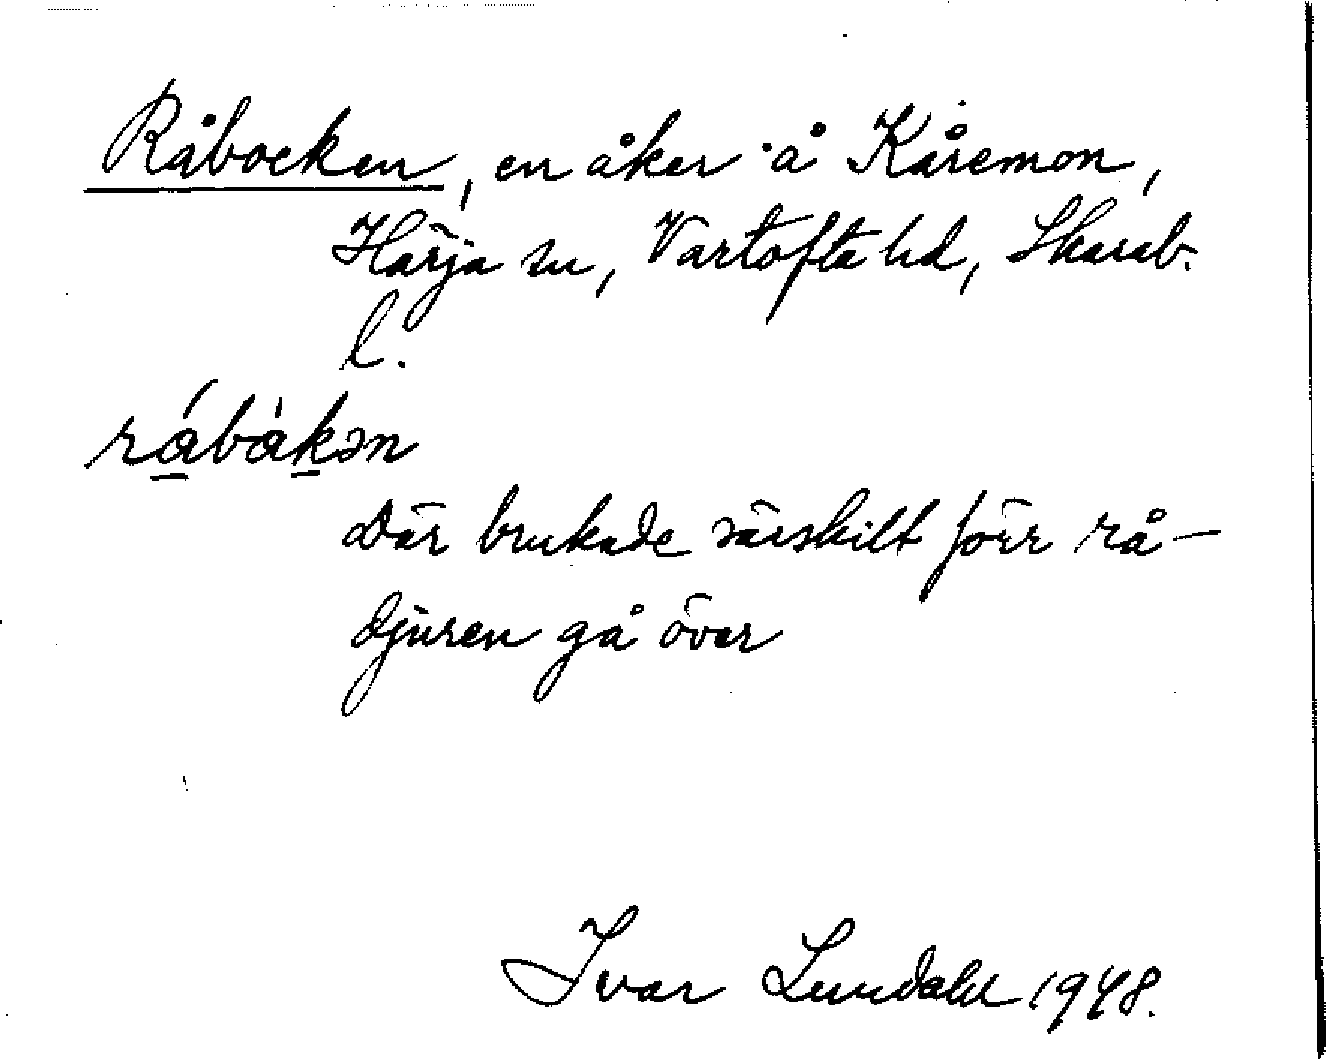 Råbocken, en åker å Kåremon,
Härja sn, Vartofta hd, Skarab.
l.
råbåkən
Där brukade särskilt förr rå-
djuren gå över
Ivar Lundahl 1948.